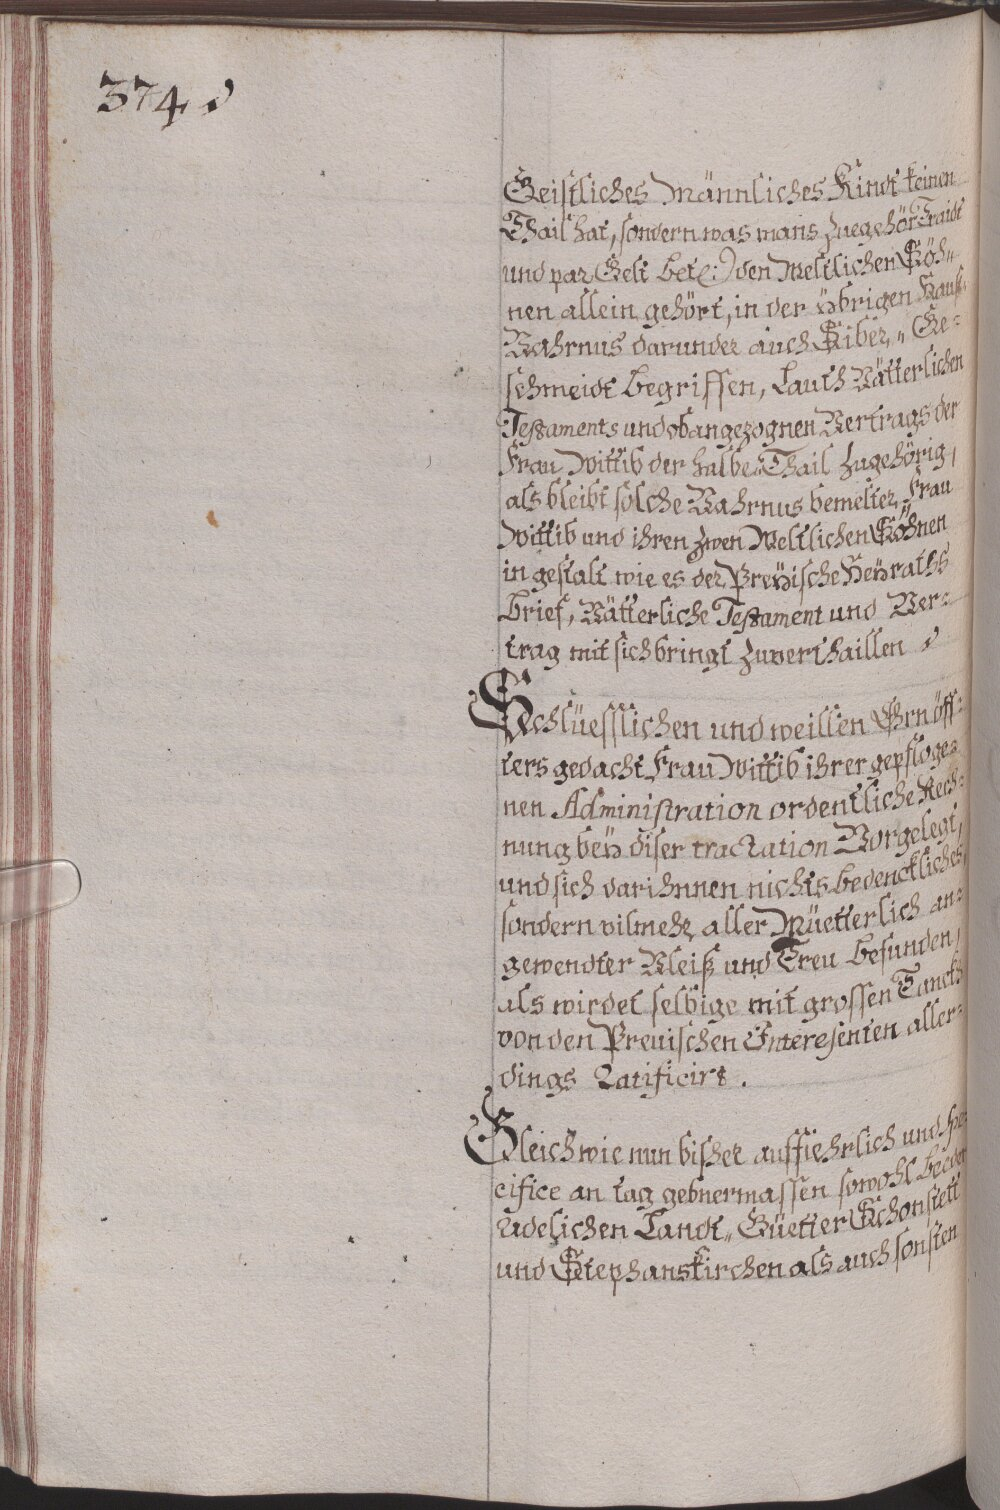 374
Geistliches Männliches Kindt keinen
Thail hat, sondern was mans Zuegehör Traidt
und par Gelt bet(:) den Weltlichen Söh„
nen allein gehört, in der übrigen Hauß„
Vahrnus darunder auch Silber„ Ge=
schmeidt begriffen, Lauth Vätterlichen
Testaments und obangezognen Vertrags der
Frau Wittib der halbe Thail Zugehörig,
als bleibt solche Vahrnus bemelter Frau
Wittib und ihren Zwen Weltlichen Söhnen
in gestalt wie es der Preÿische Heÿraths
Brief, Vätterliche Testament und Ver=
trag mit sich bringt Zuverthaillen
Schlüesslichen und weillen Ehrnöff=
ters gedacht Frau Wittib ihrer gepfloge=
nen Administration ordentliche Rech=
nung beÿ diser tractation Vorgelegt,
und sich darihnnen nichts bedenckliches,
sondern vilmehr aller Müetterlich an=
gewendter Vleiß und Treu befunden,
als wirdet selbige mit grossen Tanckh
von den Preuischen Interesenten aller=
dings Ratificirt.
Gleichwie nun bisher auffiehrlich und spe=
cifice an tag gebnermassen sowohl beeder
Adelichen Landt„ Güetter Schonstett
und Stephanskirchen als auch sonsten